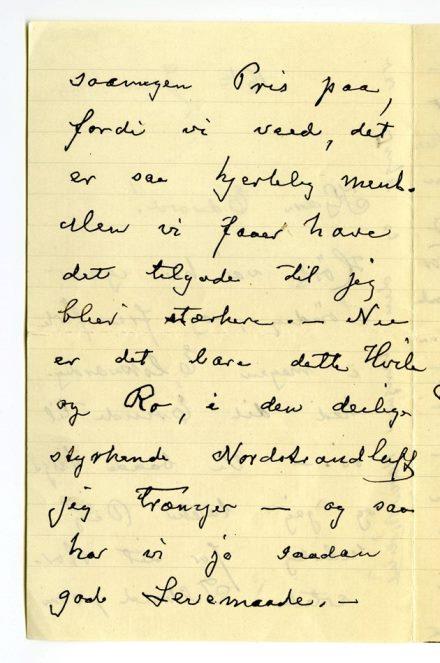 saameget Pris paa,
fordi vi veed, det
er saa hjertelig ment.
Men vi faaer have
det tilgode til jeg
bliver stærkere. — Nu
er det bare dette Hvile
og Ro, i den deilige
styrkende Nordstrandluft
jeg trænger — og saa
har vi jo saadan
god Levemaade. —